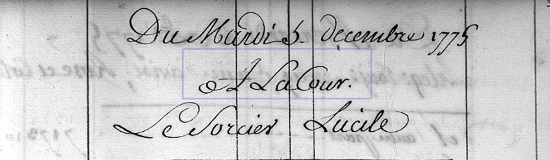 Du Mardi 5. decembre 1775
et La Cour.
Le Sorcier Lucile